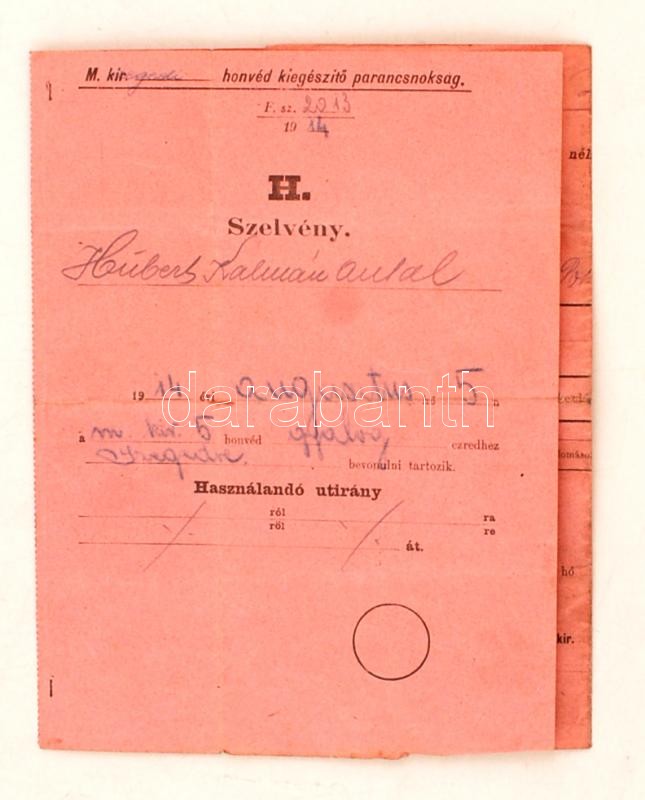 M. kir. szegedi honvéd kiegészitő parancsnokság.
F. sz. 2013
19 14
H.
Szelvény.
Hubert Kálmán Antal
19 14 évi augusztus hó 5 n
a m. kir. 5 honvéd gyalog ezredhez
Szegedre. bevonulni tartozik.
Használandó utirány
ról ra
röl re
át.
darabanth
nél
hó
kir.